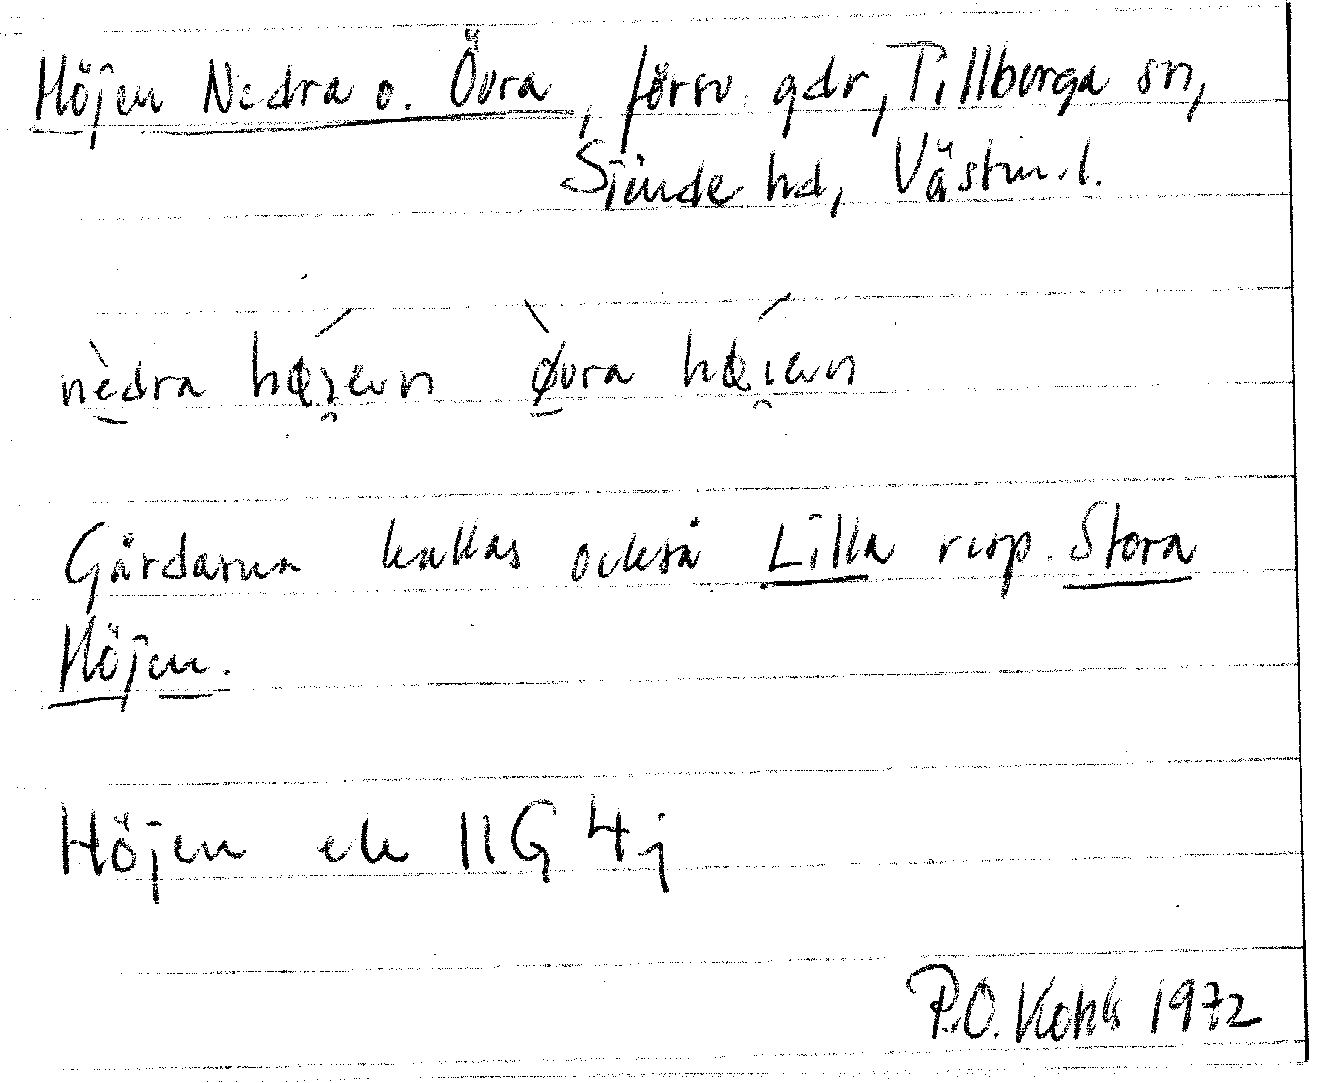 Höjen Nedra o. Övra, försv. gdr, Tillberga sn,
Siende hd, Västm.l.
nèdra övra
Gårdarna kallas också Lilla resp. Stora
Höjen.
Höjen ek 11G 4j
P.O. 1972